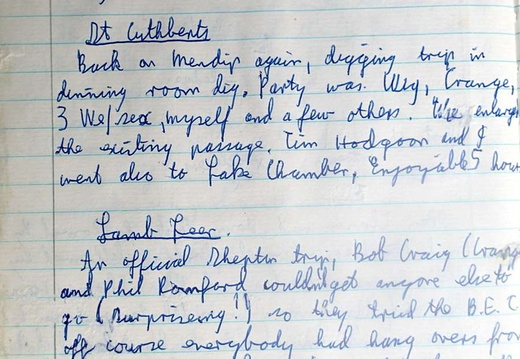 St Cuthberts
Back on Mendip again, digging trip in
dinning room dig. Party was Wig, Crange,
3 We/sex, myself and a few others. We enlarg
the existing passage. Tim Hodgson and I
went also to Lake Chamber, Enjoyable 5 hour
Lamb Leer.
An official Shepton trip, Bob Craig (Crang
and Phil Romford couldn't get anyone else to
go (Surprising!!) so they tried the B.E.C
off course everybody had hang overs from